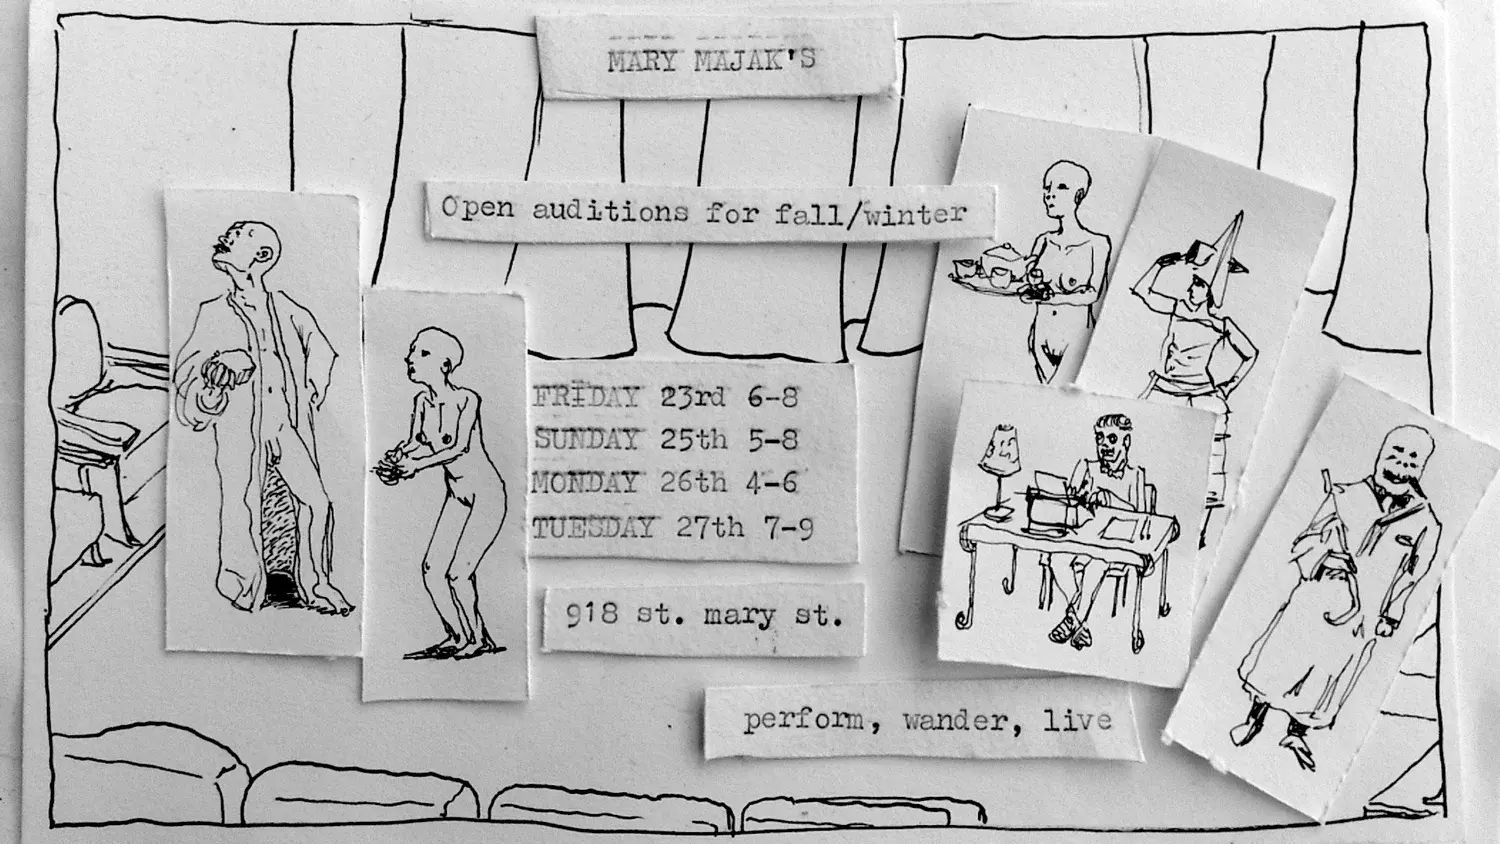 MARY MAJAK'S
Open auditions for fall/winter
FRIDAY 23rd 6-8
SUNDAY 25th 5-8
MONDAY 26th 4-6
TUESDAY 27th 7-9
918 st. mary st.
perform, wander, live